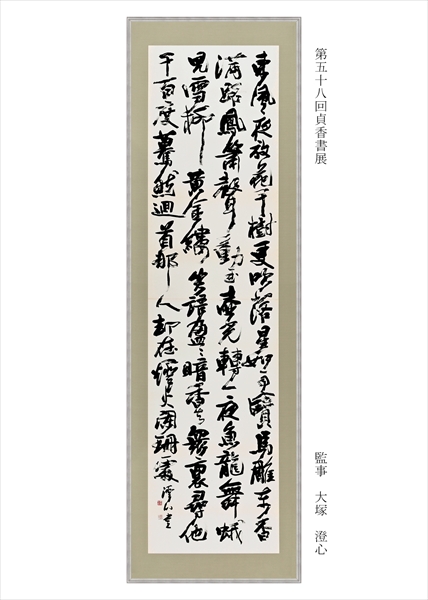 第五十八回貞香書展
監事　大塚　澄心
東風夜放花千樹更吹落星如雨寶馬雕車香
滿路鳳簫聲動玉壺光轉一夜魚龍舞蛾
兒雪柳黃金縷笑語盈〻暗香去衆裏尋他
千百度驀然迴首那人却在燈火闌珊處 澄心書